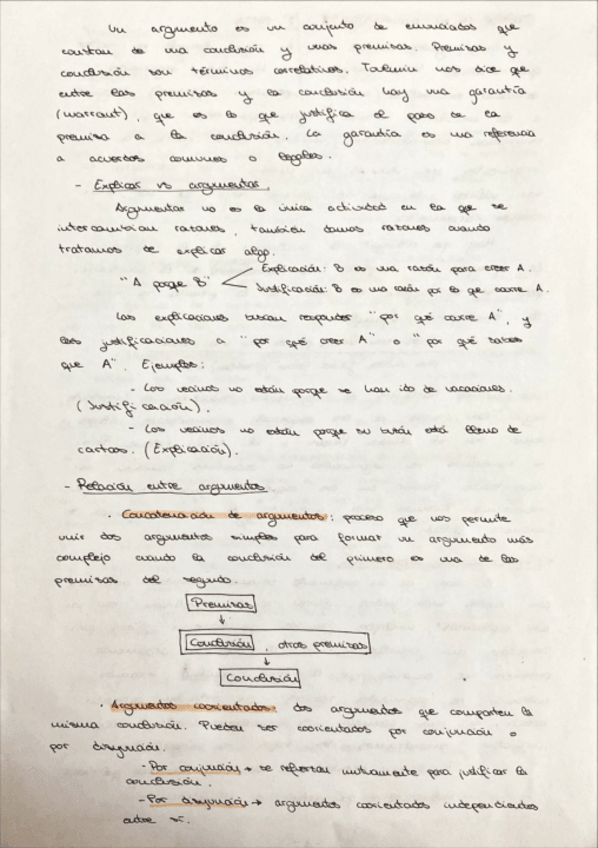 Un argumento es un conjunto de enunciados que
constan de una conclusión y unas premisas. Premisas y
conclusión son términos correlativos. Toulmin nos dice que
entre las premisas y la conclusión hay una garantía
(warrant), que es lo que justifica el paso de la
premisa a la conclusión. La garantía es una referencia
a acuerdos comunes o legales.
- Explicar vs argumentar.
Argumentar no es la única actividad en la que se
intercambian razones, también damos razones cuando
tratamos de explicar algo.
"A porque B"
Explicación: B es una razón para creer A.
Justificación: B es una razón por lo que ocurre A.
Las explicaciones buscan responder "por qué ocurre A", y
las justificaciones a "por qué creer A" o "por qué sabes
que A". Ejemplos:
- Los vecinos no están porque se han ido de vacaciones.
(Justificación).
- Los vecinos no están porque su buzón está lleno de
cartas. (Explicación).
- Relación entre argumentos
· Concatenación de argumentos: proceso que nos permite
unir dos argumentos simples para formar un argumento más
complejo cuando la conclusión del primero es una de las
premisas del segundo.
Premisas
↓
Conclusión, otras premisas
↓
Conclusión
· Argumentos coorientados: dos argumentos que comparten la
misma conclusión. Pueden ser coorientados por conjunción o
por disyunción.
- Por conjunción → se refuerzan mutuamente para justificar la
conclusión.
- Por disyunción → argumentos coorientados independientes
entre sí.